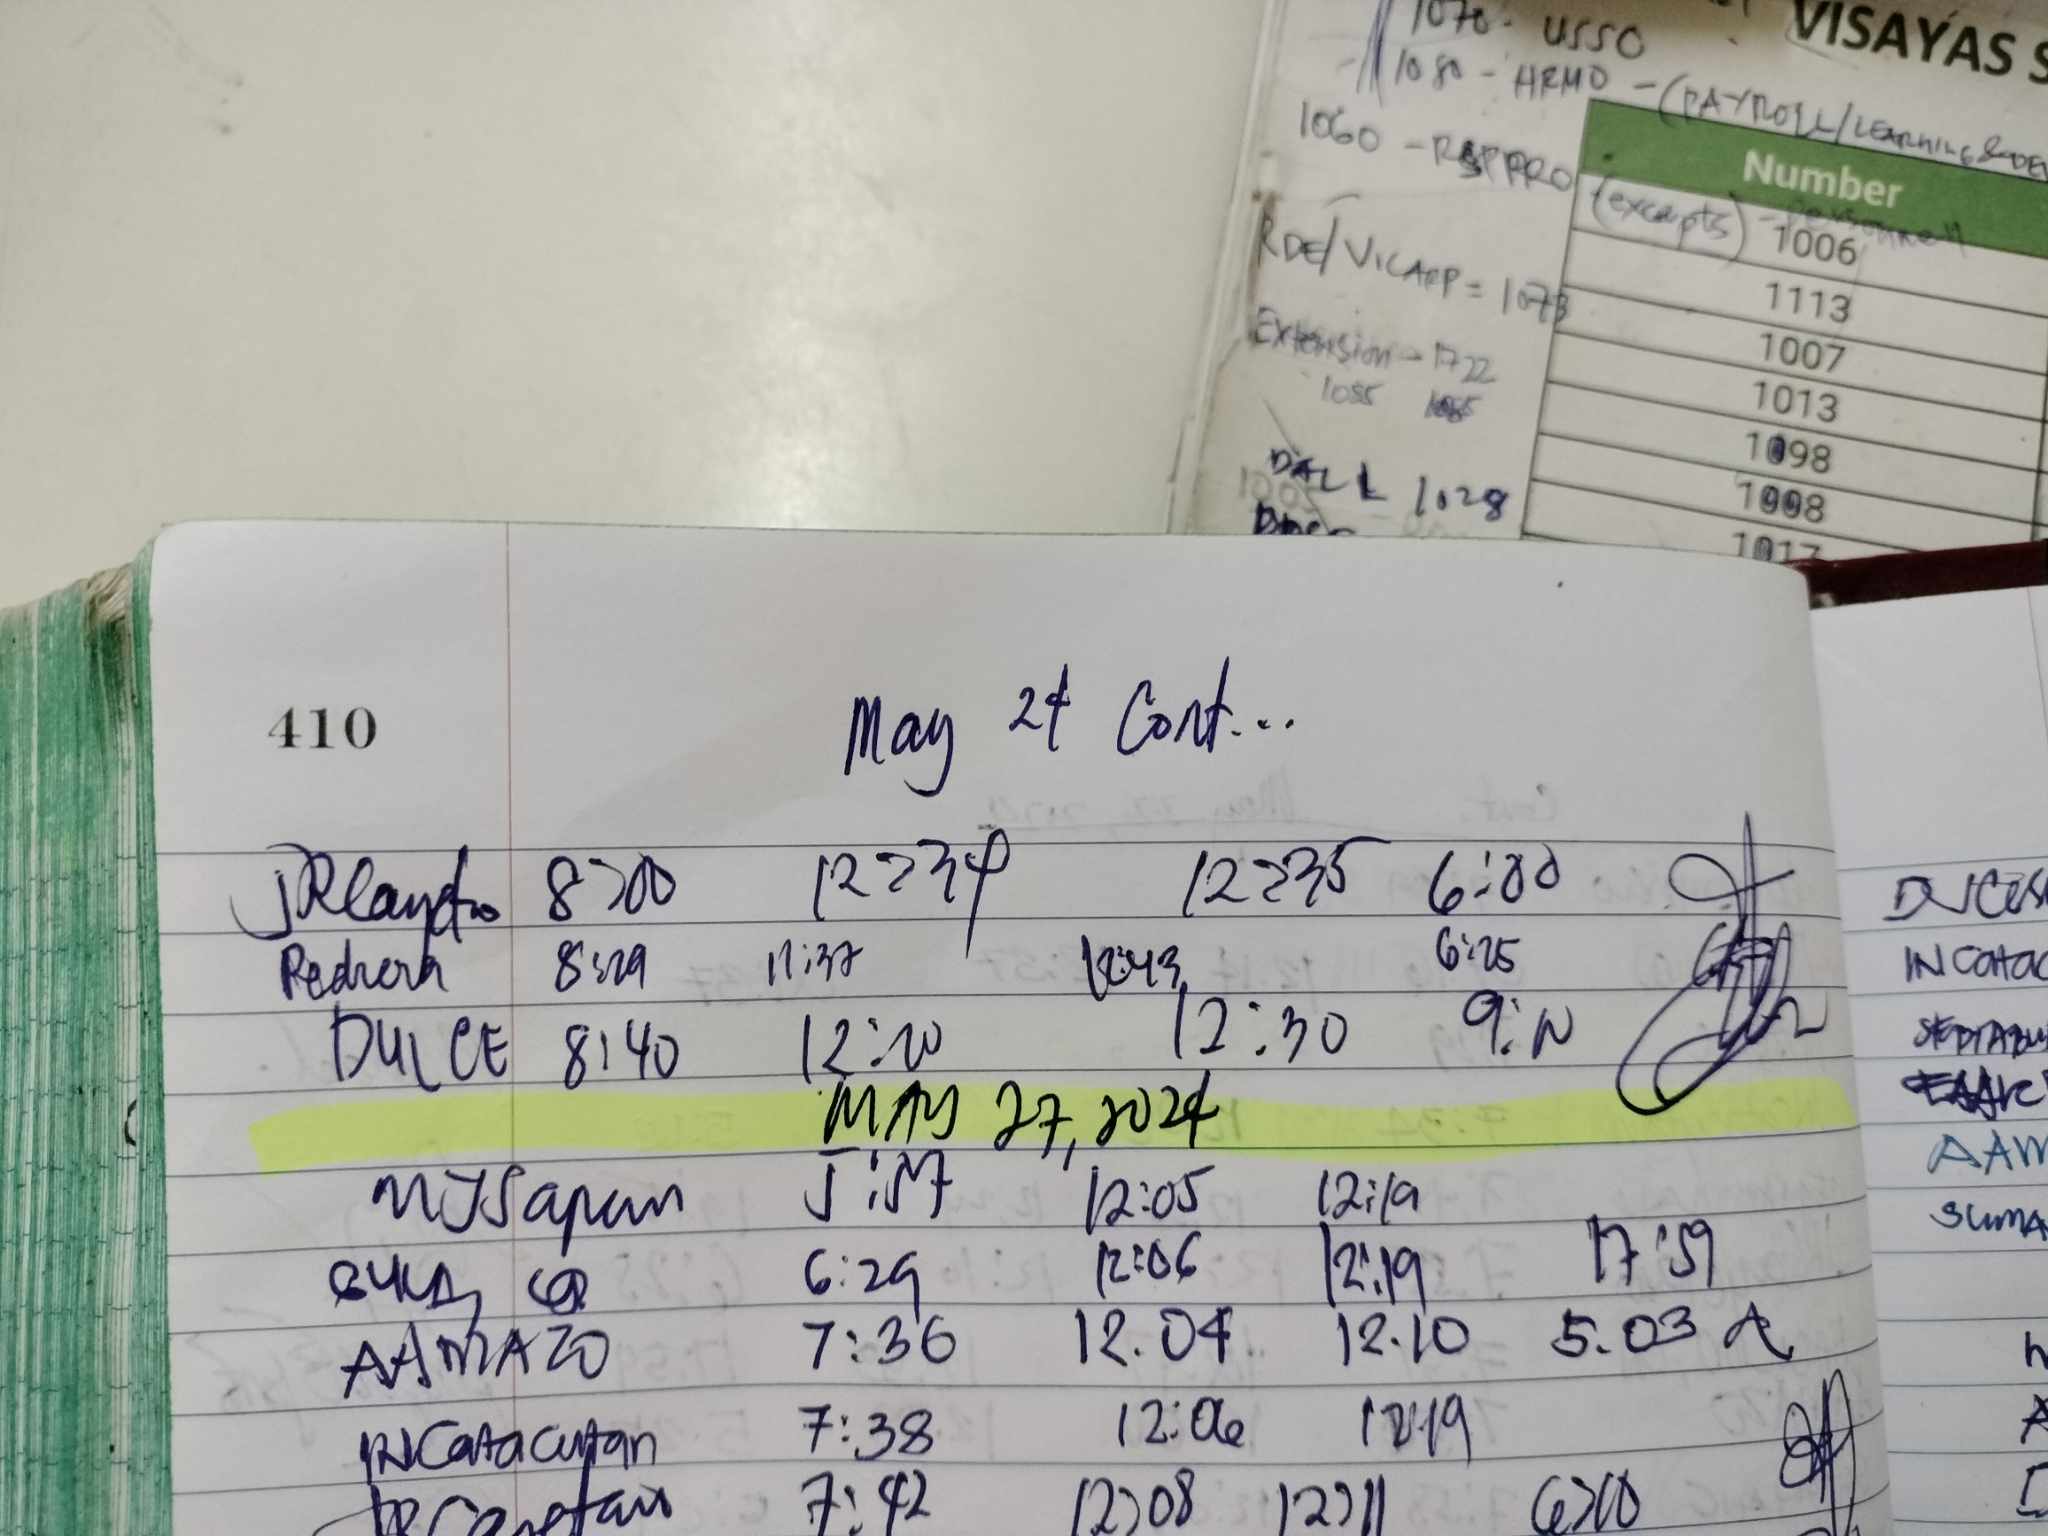 VISAYAS S
1070 - USSO
1080 - HRMO - (PAYROLL/LEARNING & DEV
1060 - RSPPRO
Number
(excerpts) - personnel
1006
RDE/VICARP = 1073
1113
Extension - 1722
1007
1055 1065
1013
1098
DALL 1028
1008
1017
410
May 24 Cont...
8:00 12:34 12:35 6:00
8:29 11:37 12:43 6:25
DULCE 8:40 12:20 12:30 9:10
MAY 27, 2024
NJSapan 5:57 12:05 12:19
6:29 12:06 12:19 17:59
AAMAZO 7:36 12.04 12.10 5.03
INCatacutan 7:38 12:06 12:19
7:42 12:08 12:11 6:10
INCatac
AAM
SUMA